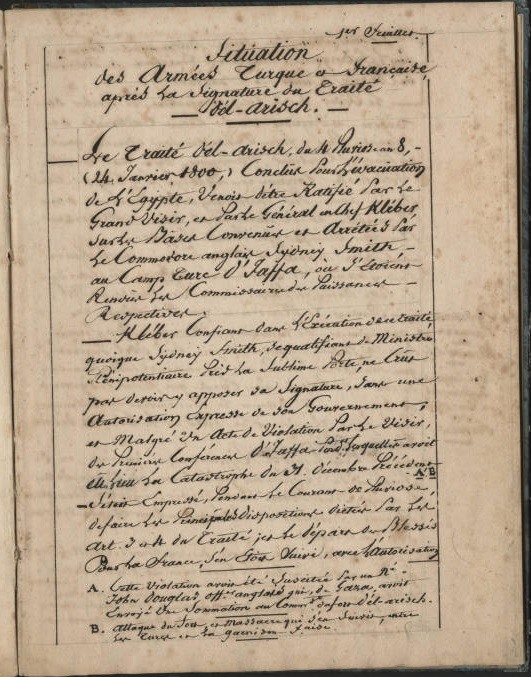 1er Feuillet.
Situation
des Armées Turque et Française,
après La Signature du Traité
d'él-arisch.
Le Traité d'él-arisch, du 4 Pluviose an 8,
(24 Janvier 1800,) Conclu Pour L'évacuation
de L'Egypte, Venoit d'être Ratifié Par Le
Grand Visir, et Par Le Général en Chef Kléber
Sur Les Bases Convenües et Arrêtées Par
Le Commodore anglais Sydney Smith
au Camp Turc D'Jaffa, où S'étoient
Rendus Les Commissaires des Puissances
Respectives.
Kléber Confiant dans L'Exécution de ce traité,
quoique Sydney Smith, se qualifiant de Ministre
Plénipotentiaire Près La Sublime Porte, ne Crut
pas devoir y apposer Sa Signature, Sans une
Autorisation Expresse de Son Gouvernement,
et Malgré Un Acte de Violation Par Le Visir,
des Premières Conférences D'Jaffa Pendt Lesquelles avoit
eu Lieu La Catastrophe du 31. Décembre Précédent A B
S'étoit Empressé, Pendant Le Courant de Pluviose,
de faire Les Principales Dispositions dictées Par Les
Art. 3 et 4 du Traité; et Le départ de Blessés
Pour La France, S'en étoit Suivi, avec L'Autorisation
A. Cette Violation avoit été Suscitée Par un Né
John Douglas, offer anglais qui, de Gaza, avoit
Envoyé Une Sommation au Commt du fort d'él-arisch.
B. Attaque du Fort, et Massacre qui S'en Suivit, entre
Les Turcs et La garnison